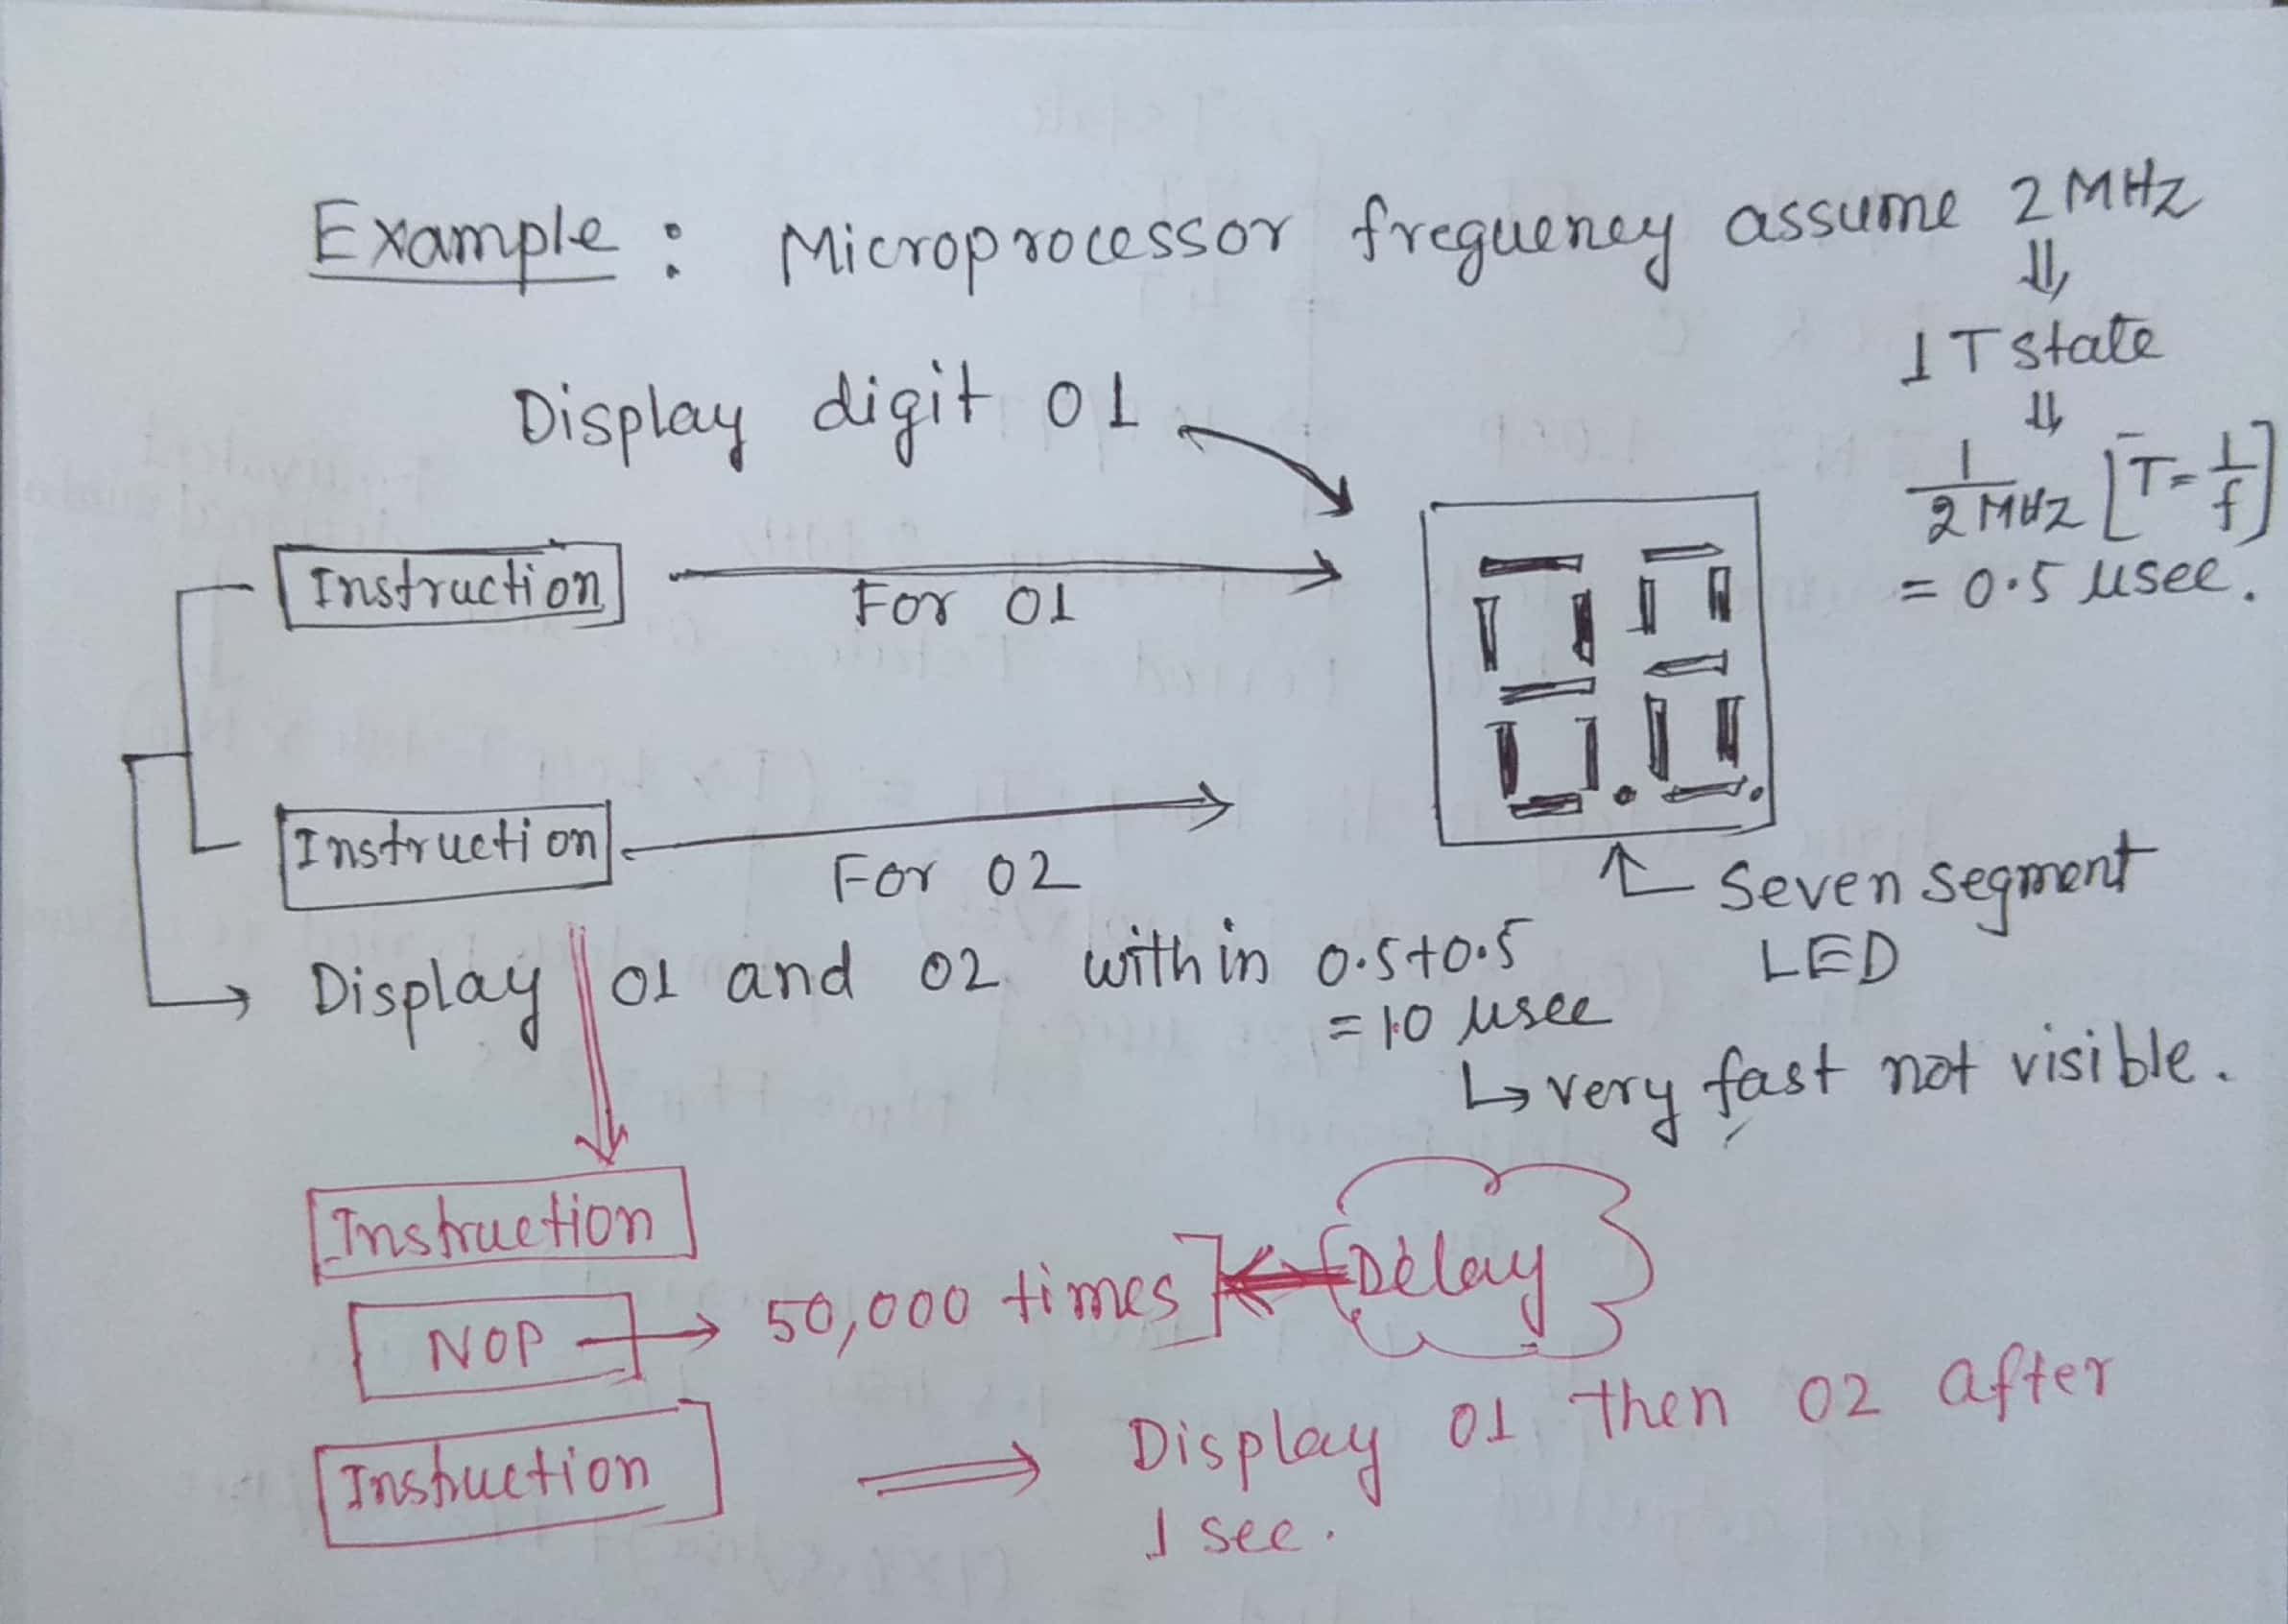 Example : Microprocessor frequency assume 2 MHz
⇓
1 T state
⇓
1/2 MHz [T = 1/f]
= 0.5 μsec.
Display digit 01
Instruction
For 01
Instruction
For 02
Seven segment
LED
Display 01 and 02 within 0.5+0.5
= 1.0 μsec
↳ very fast not visible.
Instruction
NOP → 50,000 times ] ← Delay
Instruction ⇒ Display 01 then 02 after
1 sec.